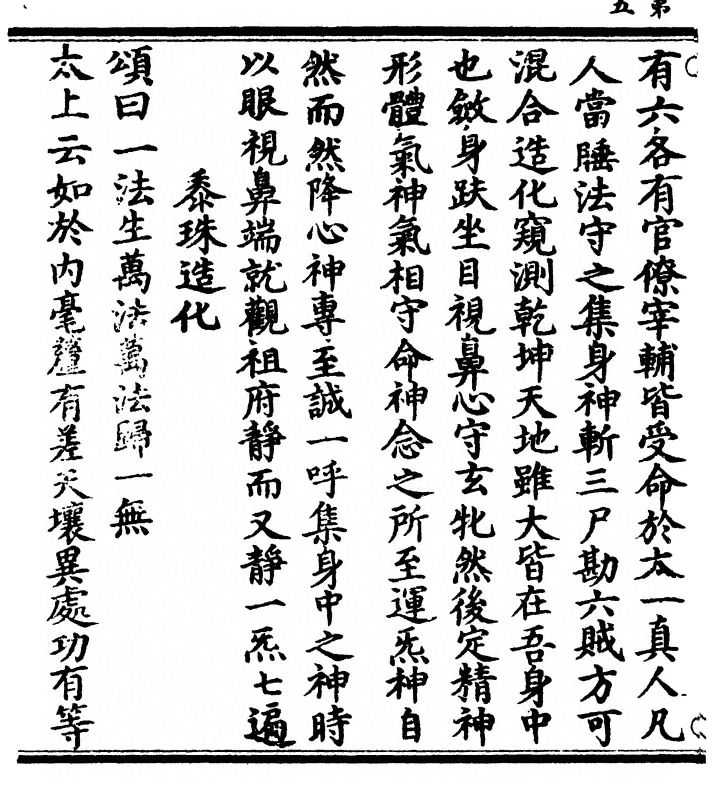 第五
有六各有官僚宰輔皆受命於太一真人凡
人當睡法守之集身神斬三尸勘六賊方可
混合造化窺測乾坤天地雖大皆在吾身中
也斂身趺坐目視鼻心守玄牝然後定精神
形體氣神氣相守命神念之所至運炁神自
然而然降心神專至誠一呼集身中之神時
以眼視鼻端就觀祖府靜而又靜一炁七遍
黍珠造化
頌曰一法生萬法萬法歸一無
太上云如於內毫釐有差天壤異處功有等